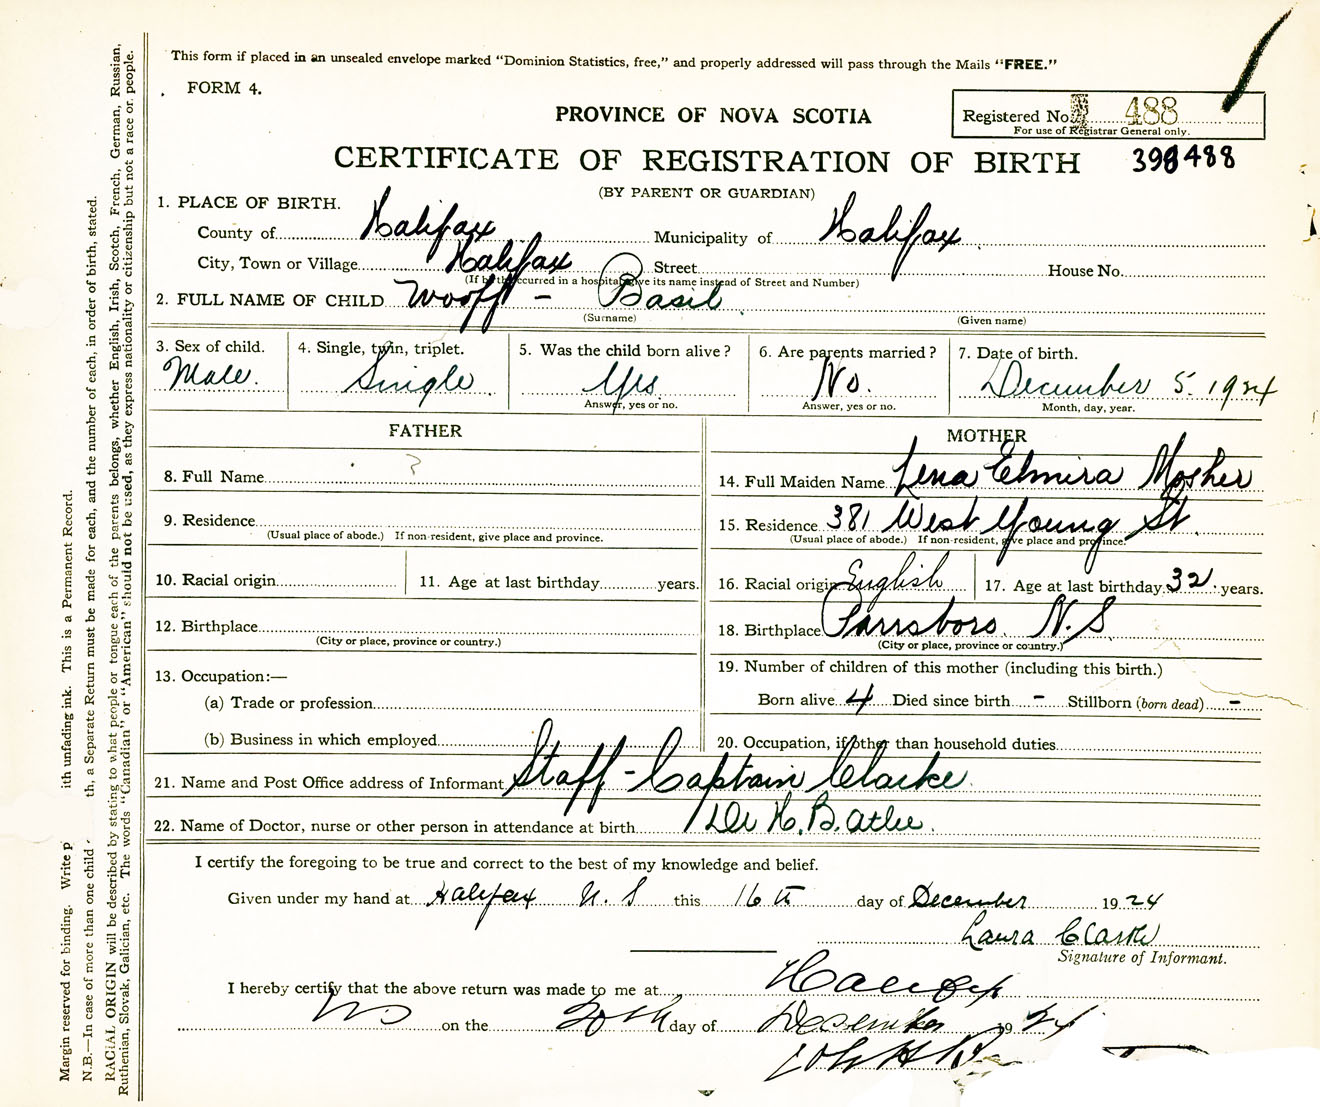 This form if placed in an unsealed envelope marked "Dominion Statistics, free," and properly addressed will pass through the Mails "FREE."
FORM 4.
PROVINCE OF NOVA SCOTIA
Registered No. 488
For use of Registrar General only.
CERTIFICATE OF REGISTRATION OF BIRTH 398488
(BY PARENT OR GUARDIAN)
1. PLACE OF BIRTH.
County of Halifax Municipality of Halifax
City, Town or Village Halifax Street House No.
(If birth occurred in a hospital give its name instead of Street and Number)
2. FULL NAME OF CHILD Wooff - Basil
(Surname) (Given name)
3. Sex of child. 4. Single, twin, triplet. 5. Was the child born alive? 6. Are parents married? 7. Date of birth.
Male. Single Yes No. December 5. 1924
Answer, yes or no. Answer, yes or no. Month, day, year.
FATHER
8. Full Name ?
9. Residence
(Usual place of abode.) If non-resident, give place and province.
10. Racial origin 11. Age at last birthday years.
12. Birthplace
(City or place, province or country.)
13. Occupation:—
(a) Trade or profession
(b) Business in which employed
MOTHER
14. Full Maiden Name Lena Elmira Mosher
15. Residence 381 West Young St.
(Usual place of abode.) If non-resident, give place and province.
16. Racial origin English 17. Age at last birthday 32 years.
18. Birthplace Parrsboro. N.S.
(City or place, province or country.)
19. Number of children of this mother (including this birth.)
Born alive 4 Died since birth - Stillborn (born dead) -
20. Occupation, if other than household duties
21. Name and Post Office address of Informant Staff-Captain Clarke
22. Name of Doctor, nurse or other person in attendance at birth Dr H. B. Atlee.
I certify the foregoing to be true and correct to the best of my knowledge and belief.
Given under my hand at Halifax N. S this 16th day of December 1924
Laura Clarke
Signature of Informant.
I hereby certify that the above return was made to me at Halifax
NS on the 20th day of December 1924
Margin reserved for binding. Write p ith unfading ink. This is a Permanent Record.
N.B.—In case of more than one child th, a Separate Return must be made for each, and the number of each, in order of birth, stated.
RACIAL ORIGIN will be described by stating to what people or tongue each of the parents belongs, whether English, Irish, Scotch, French, German, Russian,
Ruthenian, Slovak, Galician, etc. The words "Canadian" or "American" should not be used, as they express nationality or citizenship but not a race or people.